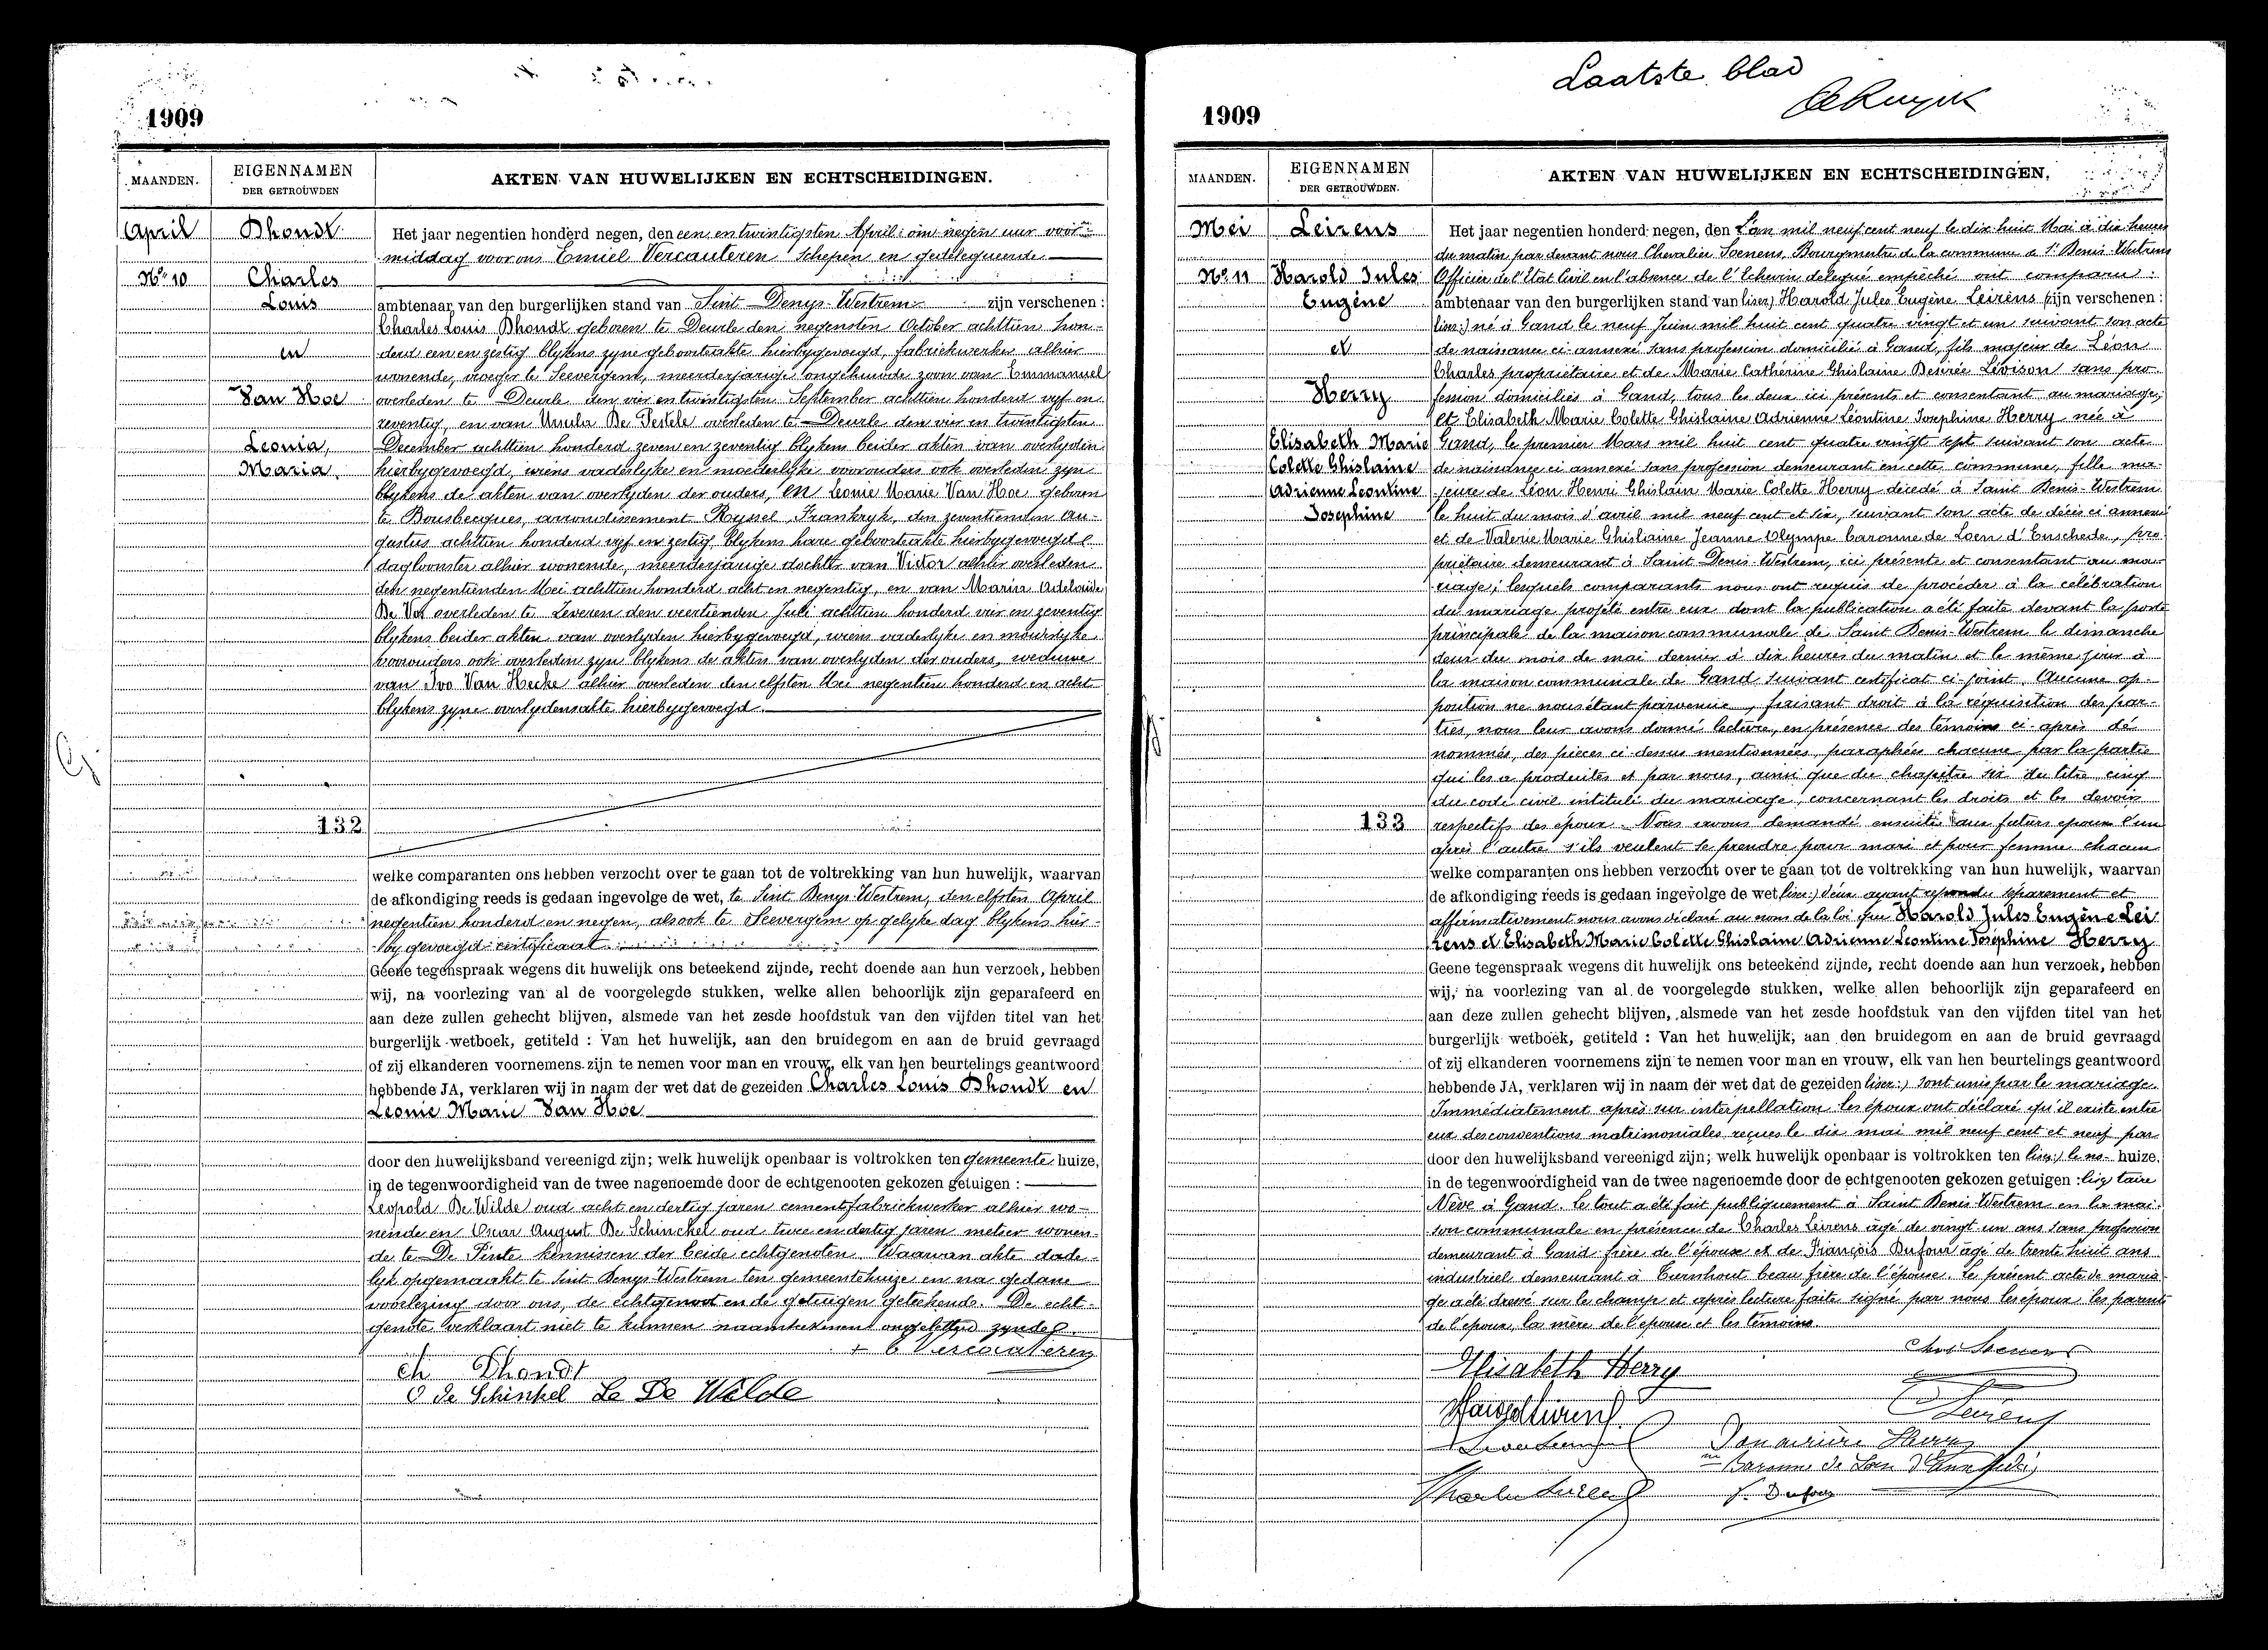 1909
MAANDEN.
EIGENNAMEN
DER GETROUWDEN
AKTEN VAN HUWELIJKEN EN ECHTSCHEIDINGEN.
April
Nº 10
Dhondt
Charles
Louis
en
Van Hoe
Leonia,
Maria.
132
Het jaar negentien honderd negen, den een en twintigsten April om negen uur voor-
middag voor ons Emiel Vercauteren Schepen en gedelegueerde
ambtenaar van den burgerlijken stand van Sint Denys-Westrem zijn verschenen :
Charles Louis Dhondt geboren te Deurle den negensten October achttien hon-
derd een en zestig blykens zyne geboorteakte hierbygevoegd, fabriekwerker alhier
wonende, vroeger te Seevergem, meerderjarige ongehuwde zoon van Emmanuel
overleden te Deurle den vier en twintigsten September achttien honderd vyf en
zeventig, en van Ursula De overleden te Deurle den vier en twintigsten
December achttien honderd zeven en zeventig blykens beider akten van overlyden
hierbygevoegd, wiens vaderlyke en moederlyke voorouders ook overleden zyn
blykens de akten van overlyden der ouders, en Leonie Marie Van Hoe geboren
te Bousbecques, arrondissement Ryssel, Frankryk, den zeventienden Au-
gustus achttien honderd vyf en zestig, blykens hare geboorteakte hierbygevoegd
dagloonster alhier wonende, meerderjarige dochter van Victor alhier overleden
den negentienden Mei achttien honderd acht en negentig, en van Maria Adelaide
De Vos overleden te Zeveren den veertienden Juli achttien honderd vier en zeventig
blykens beider akten van overlyden hierbygevoegd, wiens vaderlyke en moederlyke
voorouders ook overleden zyn blykens de akten van overlyden der ouders, weduwe
van Ivo Van Hecke alhier overleden den elfsten Mei negentien honderd en acht
blykens zyne overlydensakte hierbygevoegd.
welke comparanten ons hebben verzocht over te gaan tot de voltrekking van hun huwelijk, waarvan
de afkondiging reeds is gedaan ingevolge de wet, te Sint Denys-Westrem, den elfsten April
negentien honderd en negen, alsook te Seevergem op gelyke dag blykens hier-
bygevoegd certificaat
Geene tegenspraak wegens dit huwelijk ons beteekend zijnde, recht doende aan hun verzoek, hebben
wij, na voorlezing van al de voorgelegde stukken, welke allen behoorlijk zijn geparafeerd en
aan deze zullen gehecht blijven, alsmede van het zesde hoofdstuk van den vijfden titel van het
burgerlijk wetboek, getiteld : Van het huwelijk, aan den bruidegom en aan de bruid gevraagd
of zij elkanderen voornemens zijn te nemen voor man en vrouw, elk van hen beurtelings geantwoord
hebbende JA, verklaren wij in naam der wet dat de gezeiden Charles Louis Dhondt en
Leonie Marie Van Hoe
door den huwelijksband vereenigd zijn; welk huwelijk openbaar is voltrokken ten gemeente huize,
in de tegenwoordigheid van de twee nagenoemde door de echtgenooten gekozen getuigen :
Leopold De Wilde oud acht en dertig jaren cementfabriekwerker alhier wo-
nende en Omar August De Schinckel oud twee en dertig jaren metser wonen-
de te De Pinte kennissen der beide echtgenoten. Waarvan akte dade-
lyk opgemaakt te Sint Denys-Westrem ten gemeentehuize en na gedane
voorlezing door ons, de echtgenoot en de getuigen geteekend. De echt-
genote verklaart niet te kunnen naamteekenen ongeletterd zynde.
E Vercauteren
Ch Dhondt
O de Schinkel Le De Wilde
Laatste blad
1909
MAANDEN.
EIGENNAMEN
DER GETROUWDEN.
AKTEN VAN HUWELIJKEN EN ECHTSCHEIDINGEN.
Mei
Nº 11
Leirens
Harold Jules
Eugène
et
Herry
Elisabeth Marie
Colette Ghislaine
Adrienne Leontine
Josephine
133
Het jaar negentien honderd negen, den L'an mil neuf cent neuf le dix huit Mai à dix heures
du matin par devant nous Chevalier Soenens, Bourgmestre de la commune de St Denis-Westrem
Officier de l'Etat Civil en l'absence de l'Echevin delegué empêché ont comparu :
ambtenaar van den burgerlijken stand van (lisez) Harold Jules Eugène Leirens zijn verschenen :
(lisez :) né à Gand le neuf Juin mil huit cent quatre vingt et un suivant son acte
de naissance ci-annexé sans profession domicilié à Gand, fils majeur de Léon
Charles propriétaire et de Marie Cathérine Ghislaine Desirée Lévison sans pro-
fession domiciliés à Gand, tous les deux ici présents et consentant au mariage;
et Elisabeth Marie Colette Ghislaine Adrienne Léontine Josephine Herry née à
Gand, le premier Mars mil huit cent quatre vingt sept suivant son acte
de naissance ci annexé sans profession demeurant en cette commune, fille ma-
jeure de Léon Henri Ghislain Marie Colette Herry décedé à Saint Denis-Westrem
le huit du mois d'avril mil neuf cent et six, suivant son acte de décès ci annexé
et de Valerie Marie Ghislaine Jeanne Olympe baronne de Loen d'Enschede, pro-
priétaire demeurant à Saint Denis-Westrem, ici présente et consentant au ma-
riage; lesquels comparants nous ont requis de procéder à la célébration
du mariage projété entre eux dont la publication a été faite devant la porte
principale de la maison communale de Saint Denis-Westrem le dimanche
deux du mois de mai dernier à dix heures du matin et le même jour à
la maison communale de Gand suivant certificat ci-joint. Aucune op-
position ne nous étant parvenue, faisant droit à la réquisition des par-
ties, nous leur avons donné lecture, en présence des témoins ci-après dé-
nommés, des pieces ci-dessus mentionnées, paraphées chacune par la partie
qui les a produites et par nous, ainsi que du chapitre six du titre cinq
du code civil intitulé du mariage, concernant les droits et les devoirs
respectifs des époux. Nous avons demandé ensuite aux futurs epoux l'un
après l'autre s'ils veulent se prendre pour mari et pour femme chacun
welke comparanten ons hebben verzocht over te gaan tot de voltrekking van hun huwelijk, waarvan
de afkondiging reeds is gedaan ingevolge de wet (lisez :) d'eux ayant répondu séparement et
affirmativement nous avons déclaré au nom de la loi que Harold Jules Eugène Lei
rens et Elisabeth Marie Colette Ghislaine Adrienne Leontine Joséphine Herry
Geene tegenspraak wegens dit huwelijk ons beteekend zijnde, recht doende aan hun verzoek, hebben
wij, na voorlezing van al de voorgelegde stukken, welke allen behoorlijk zijn geparafeerd en
aan deze zullen gehecht blijven, alsmede van het zesde hoofdstuk van den vijfden titel van het
burgerlijk wetboek, getiteld : Van het huwelijk, aan den bruidegom en aan de bruid gevraagd
of zij elkanderen voornemens zijn te nemen voor man en vrouw, elk van hen beurtelings geantwoord
hebbende JA, verklaren wij in naam der wet dat de gezeiden (lisez :) sont unis par le mariage.
Immédiatement après sur interpellation les époux ont déclaré qu'il existe entre
eux des conventions matrimoniales reçues le dix mai mil neuf cent et neuf par
door den huwelijksband vereenigd zijn; welk huwelijk openbaar is voltrokken ten (lisez :) le no- huize,
in de tegenwoordigheid van de twee nagenoemde door de echtgenooten gekozen getuigen : lisez taire
Nève à Gand. Le tout a été fait publiquement à Saint Denis Westrem en la mai-
son communale en présence de Charles Leirens agé de vingt un ans sans profession
demeurant à Gand frère de l'époux et de François Dufour agé de trente huit ans
industriel demeurant à Turnhout beau frère de l'épouse. Le présent acte de maria-
ge a été dressé sur le champ et après lecture faite signé par nous les époux les parents
de l'époux, la mère de l'epouse et les témoins.
Elisabeth Herry
Harold Leirens
Leirens
Douairière Herry
née Baronne de Loen d'Enschedé
Charles Leirens
F. Dufour